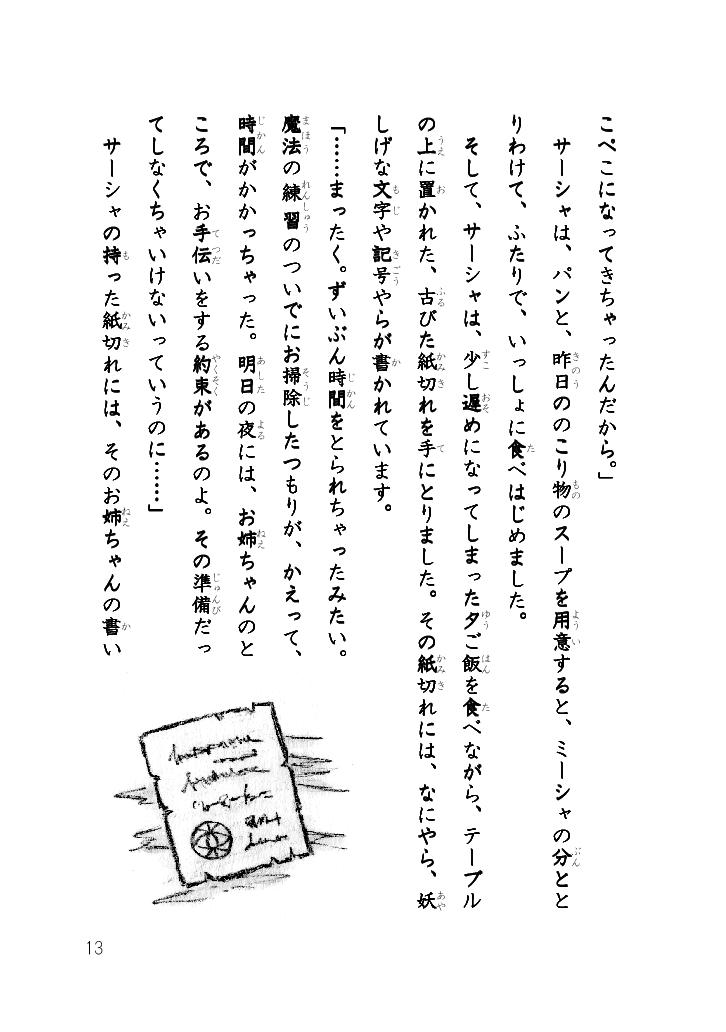 こぺこになってきちゃったんだから。」
サーシャは、パンと、昨日ののこり物のスープを用意すると、ミーシャの分とと
りわけて、ふたりで、いっしょに食べはじめました。
そして、サーシャは、少し遅めになってしまった夕ご飯を食べながら、テーブル
の上に置かれた、古びた紙切れを手にとりました。その紙切れには、なにやら、妖
しげな文字や記号やらが書かれています。
「……まったく。ずいぶん時間をとられちゃったみたい。
魔法の練習のついでにお掃除したつもりが、かえって、
時間がかかっちゃった。明日の夜には、お姉ちゃんのと
ころで、お手伝いをする約束があるのよ。その準備だっ
てしなくちゃいけないっていうのに……」
サーシャの持った紙切れには、そのお姉ちゃんの書い
13